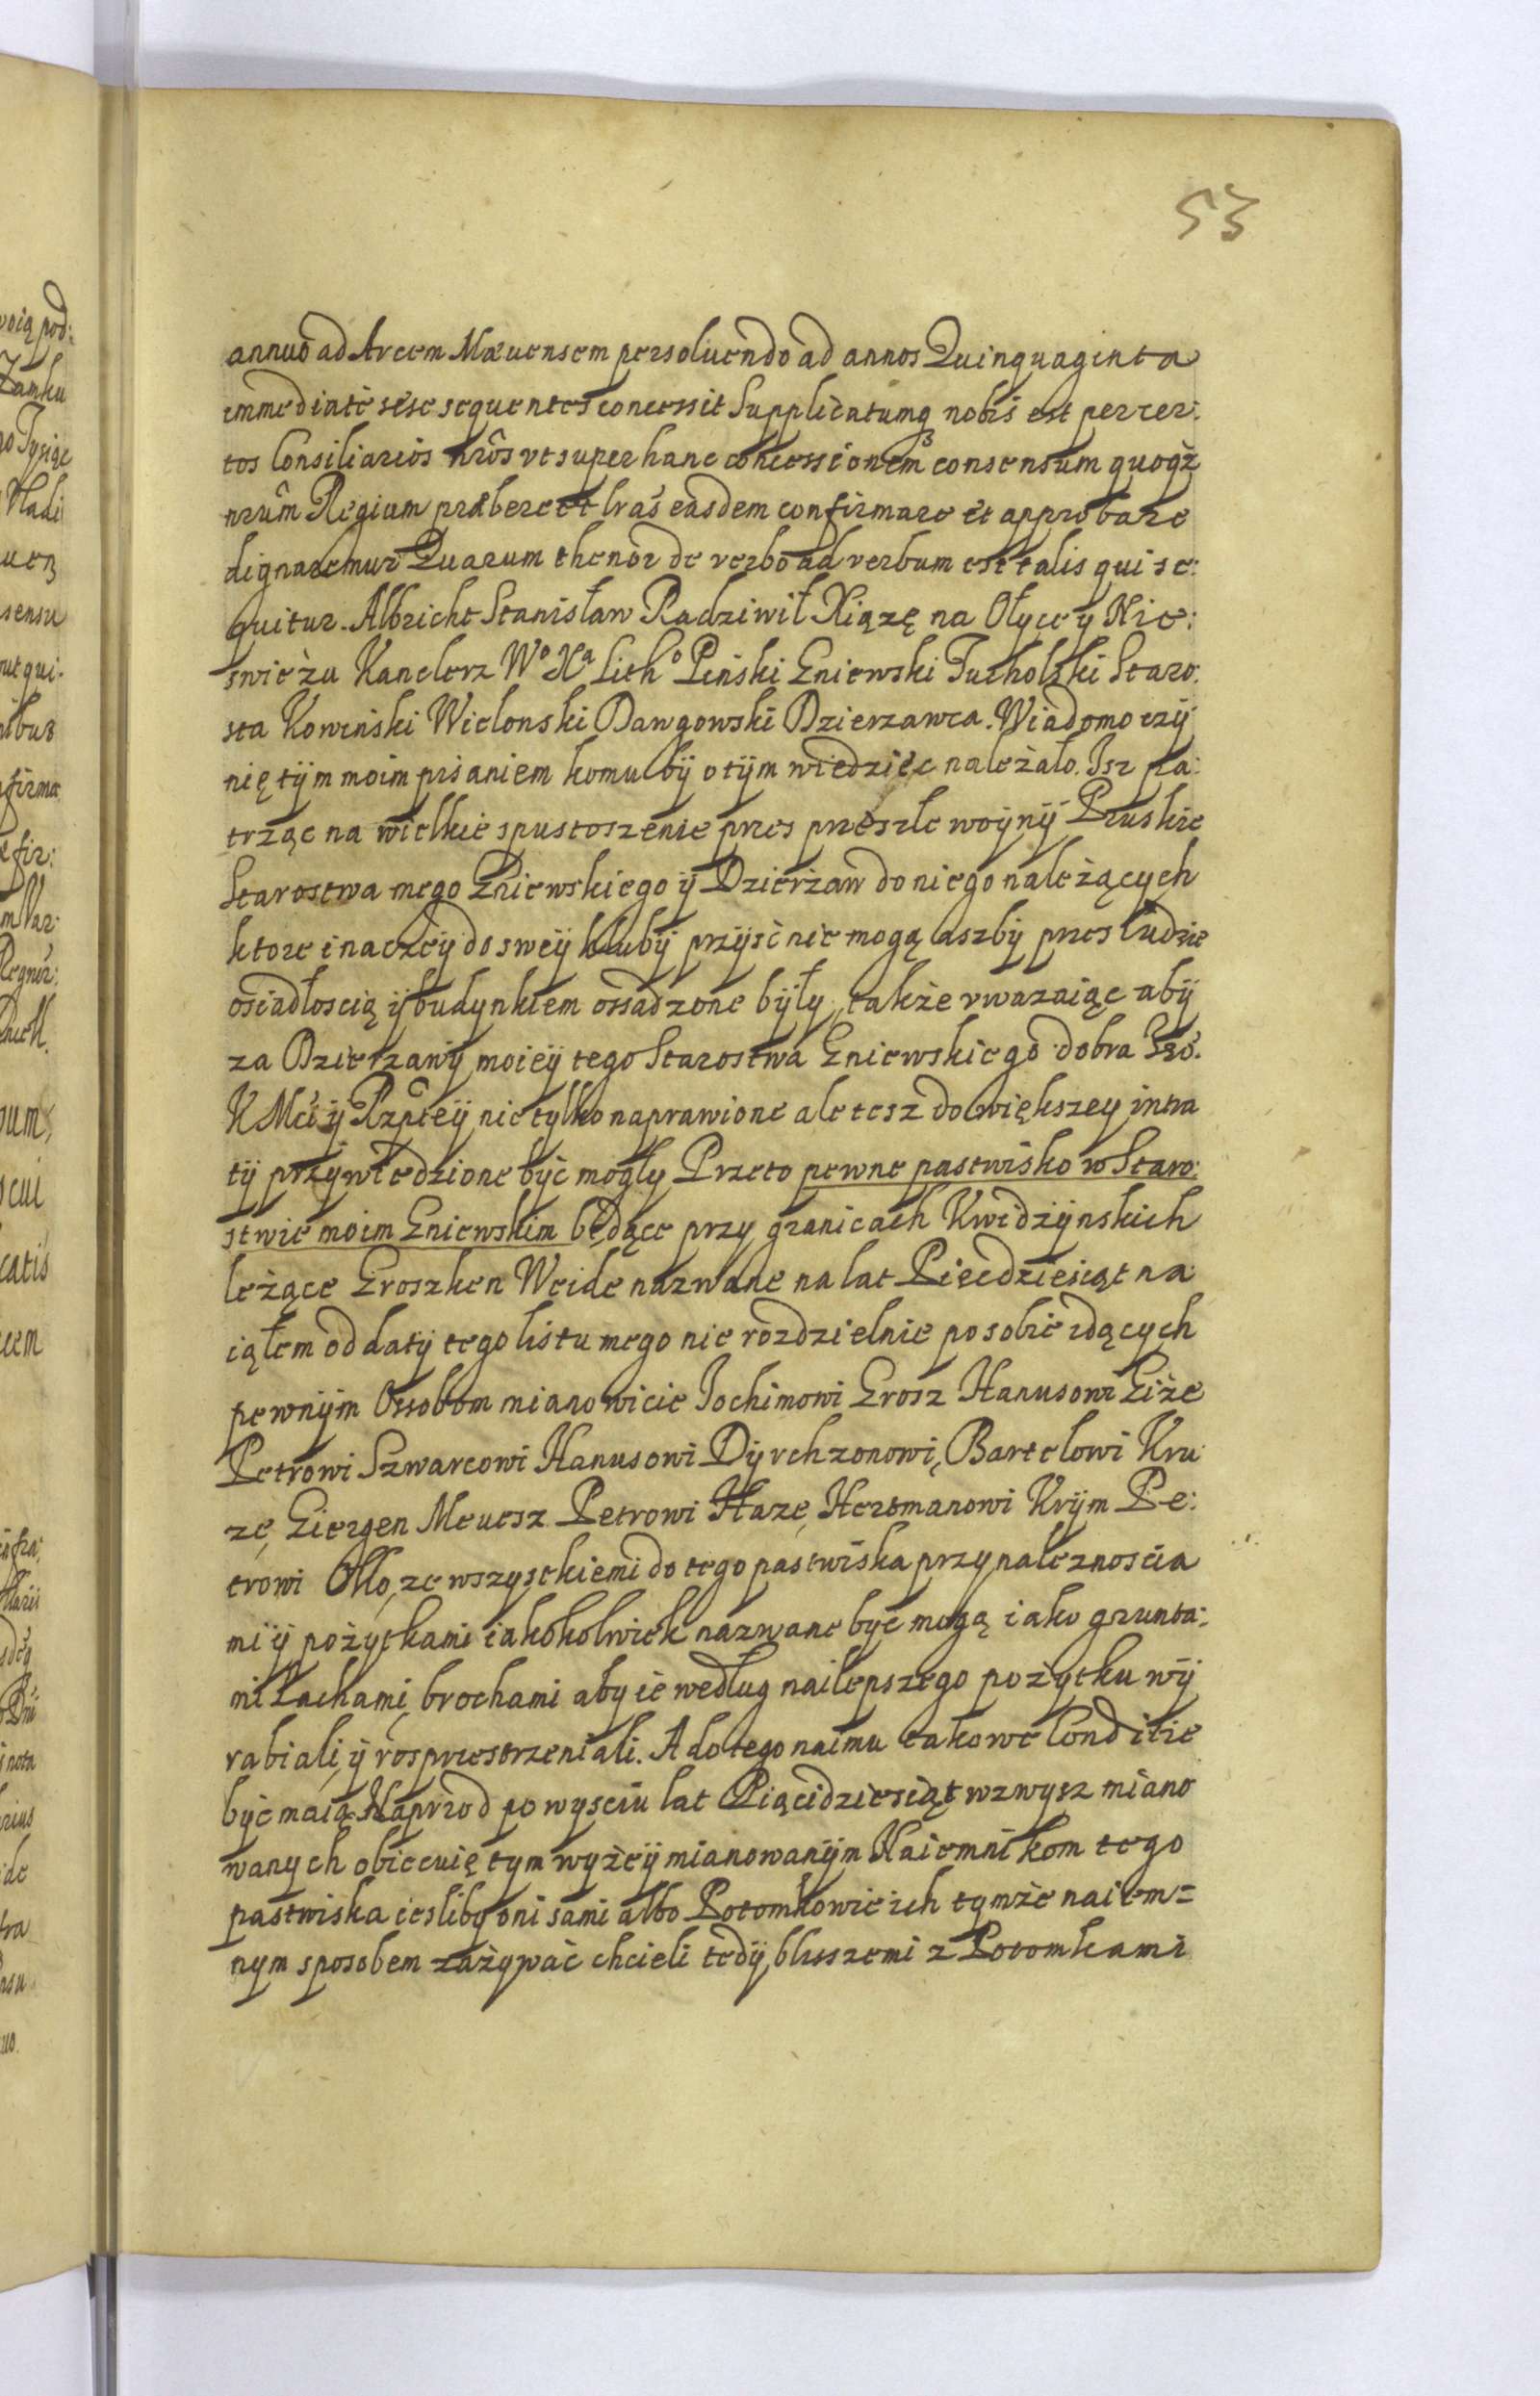 53
annuo ad Arcem Mæuensem persoluendo ad annos Quinquaginta
immediatè sese sequentes concessit Supplicatumq nobis est per cer:
tos Consiliarios nr̂os vt super hanc concessionem consensum quoqż
nrûm Regium præbere et lras easdem confirmare et approbare
dignaremur Quarum thenor de verbo ad verbum est talis qui se:
quitur. Albricht Stanisław Radziwił Xiążę na Ołyce y Nie:
świeżu Kanclerz Wº Xª Lithº Piński Gniewski Tucholski Staro:
sta Koweński Wielonski Dawgowski Dzierzawca. Wiadomo czÿ
nię tÿm moim pisaniem komu bÿ o tÿm wiedziéc należało. Isz pa:
trząc na wielkie spustoszenie przes przeszłe woynÿ Pruskie
Starostwa mego Gniewskiego ÿ Dzierżaw do niego należących
ktore inaczéÿ do sweÿ klubÿ przÿść nie mogą aszbÿ przes ludzie
osiadłoscią ÿ budynkiem ossadzone bÿły, także vwazaiąc abÿ
za Dzierzawÿ moiéÿ tego Starostwa Gniewskiego dobra Jeô.
K Mći ÿ Rzptéÿ nie tylko naprawione ale tesz do większey intra
tÿ przÿwiedzione być mogły Przeto pewne pastwisko w Staro:
stwie moim Gniewskim będące przy granicach Kwidzÿnskich
leżące Groszken Weide nazwane na lat Piecdziesiąt na:
iąłem od datÿ tego listu mego nie rozdzielnie po sobie idących
pewnÿm Ossobom mianowicie Jochimowi Grosz Hanusowi Giże
Petrowi Szwarcowi Hanusowi Dÿrchzonowi, Bartelowi Kru:
zę, Giergen Meuesz Petrowi Haze, Hermanowi Krÿm Pe:
trowi Otto, ze wszystkiemi do tego pastwiska przynaleznoscia
mi ÿ pożytkami iakokolwiek nazwane byc mogą iako grunta:
mi Łachami, brochami aby ie według nailepszego pożytku wÿ
rabiali, ÿ rosprzestrzeniali. A do tego naimu takowe Conditie
być maią. Naprzod po wysciu lat Piącidziesiąt wzwysz miano
wanych obiecuię tym wyżéÿ mianowanÿm Naiemnikom tego
pastwiska iesliby oni sami albo Potomkowie ich tymże naiem=
nym sposobem zażywać chcieli tedÿ, blisszemi z Potomkami